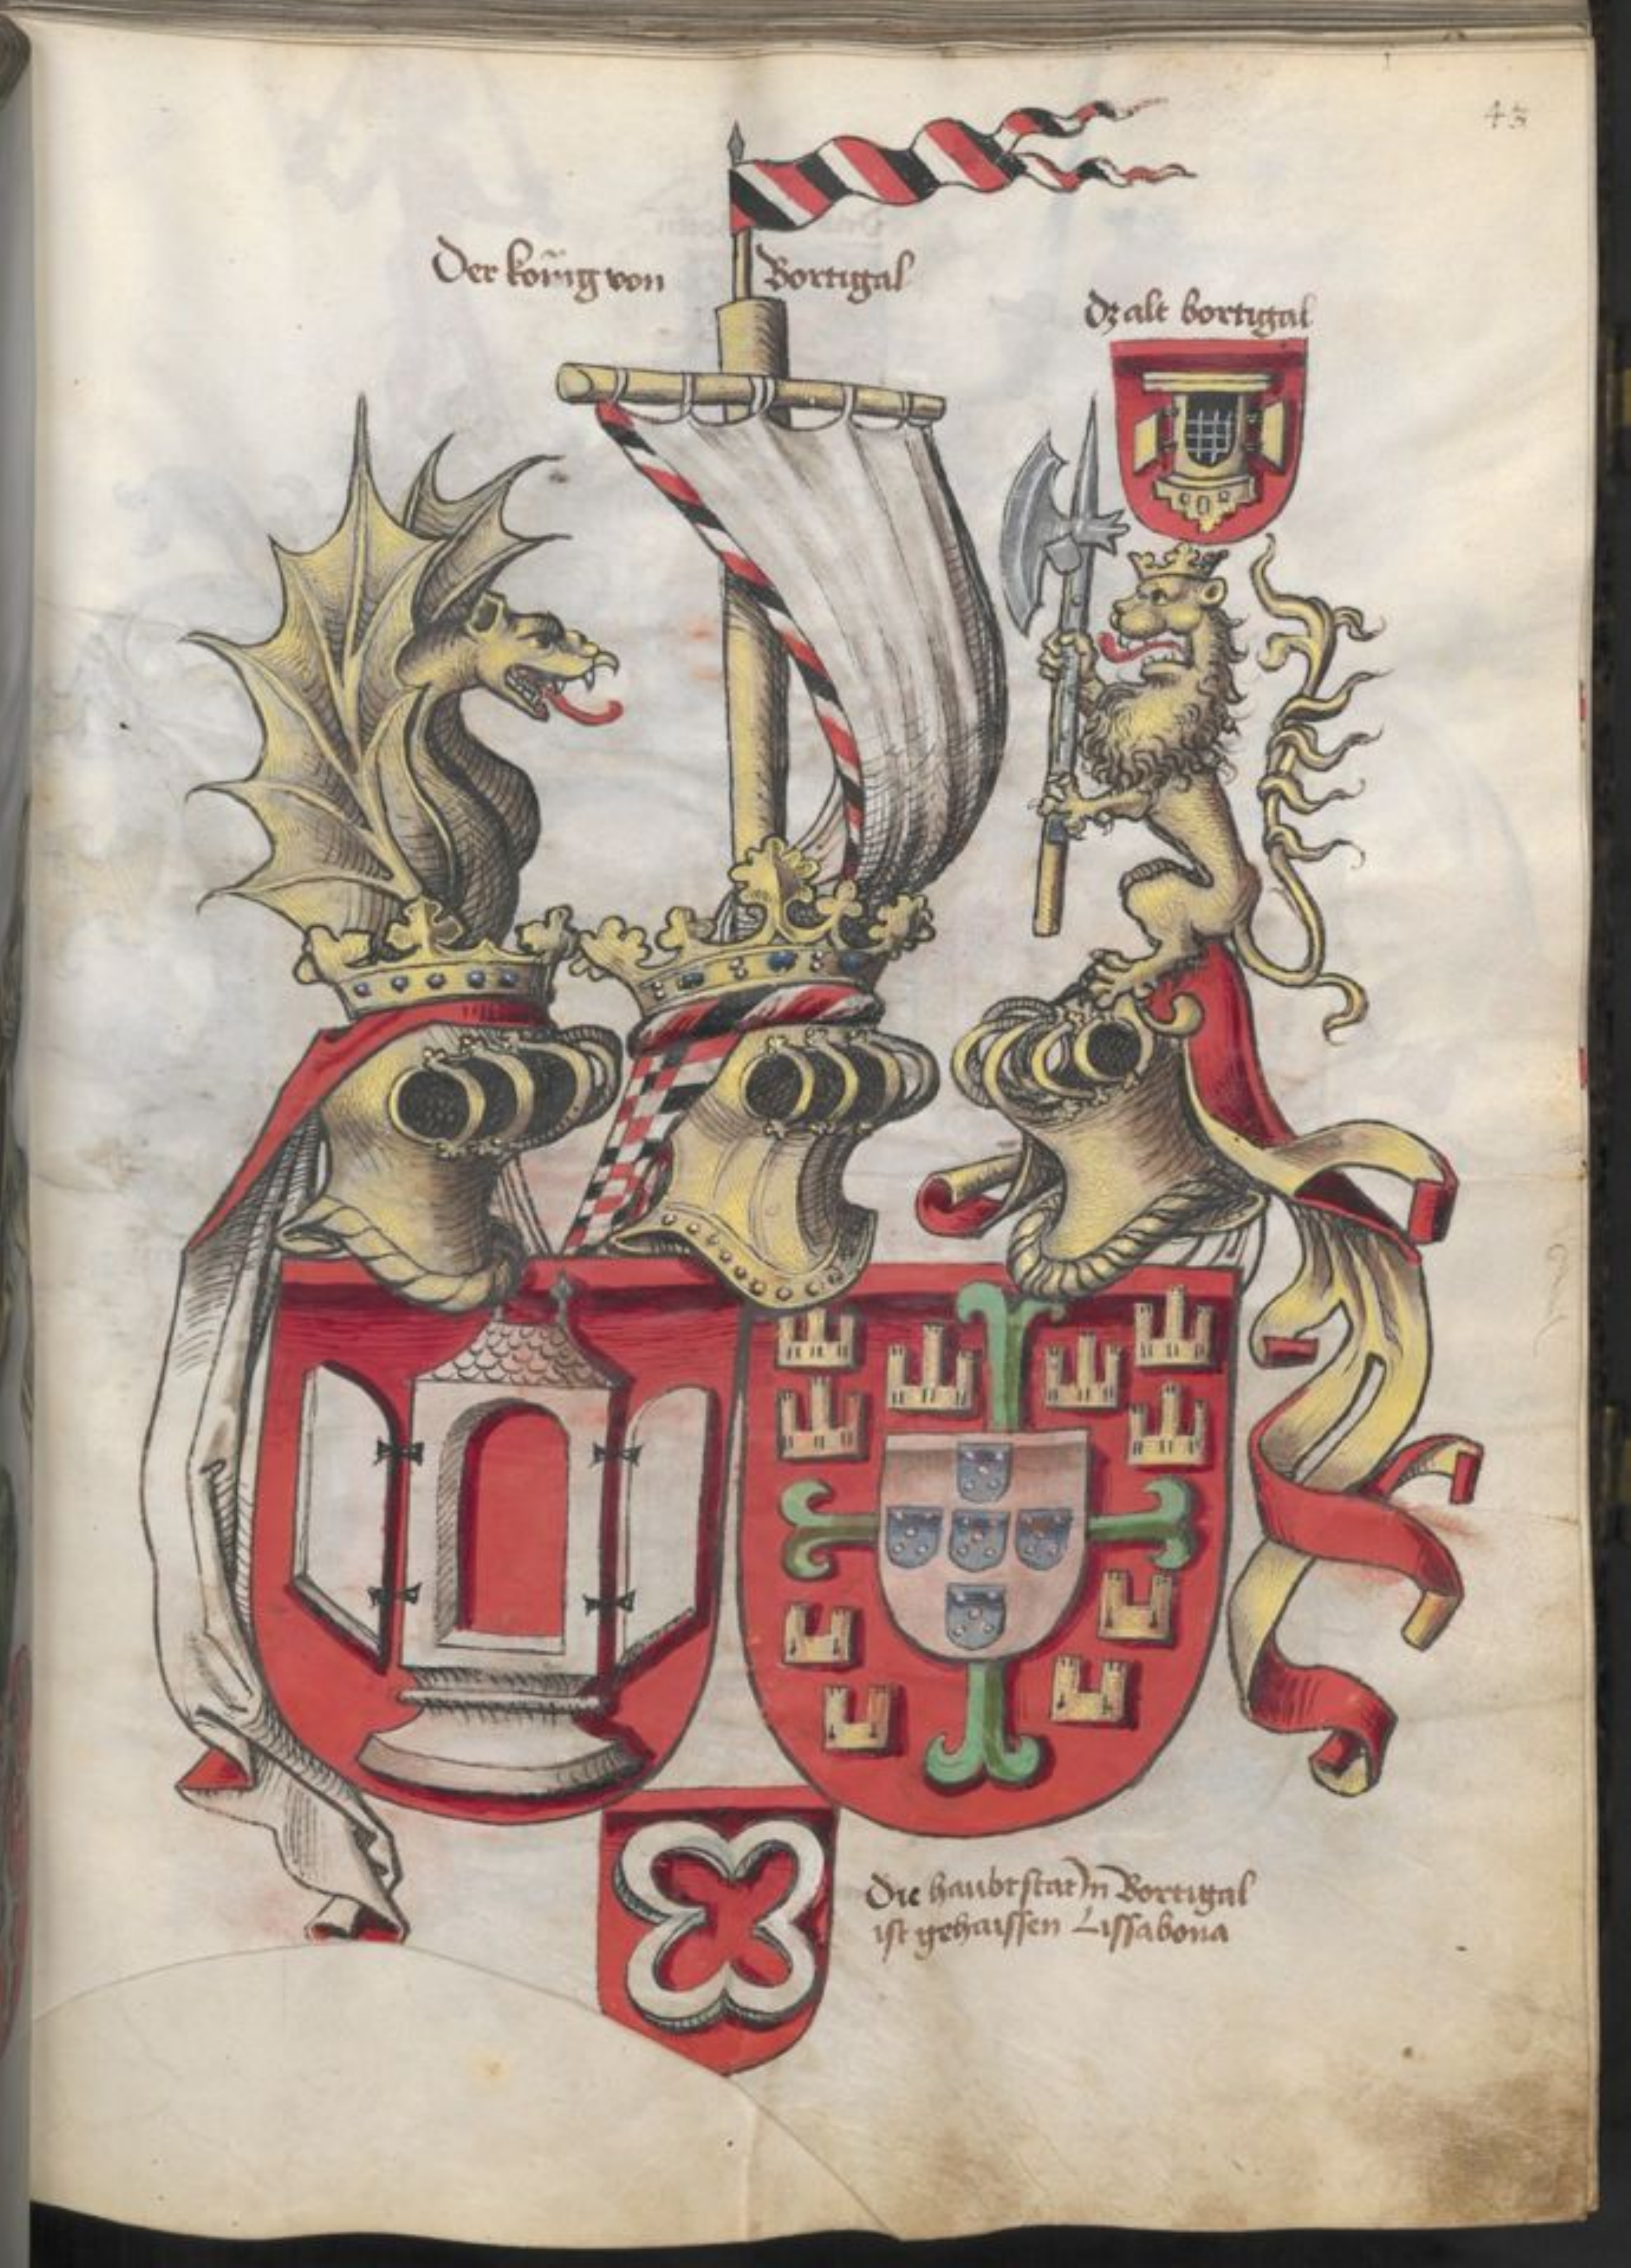 43
Der könig von Bortigal
dz alt bortigal
Die haubtstat In Bortigal
ist gehaissen Lissabona